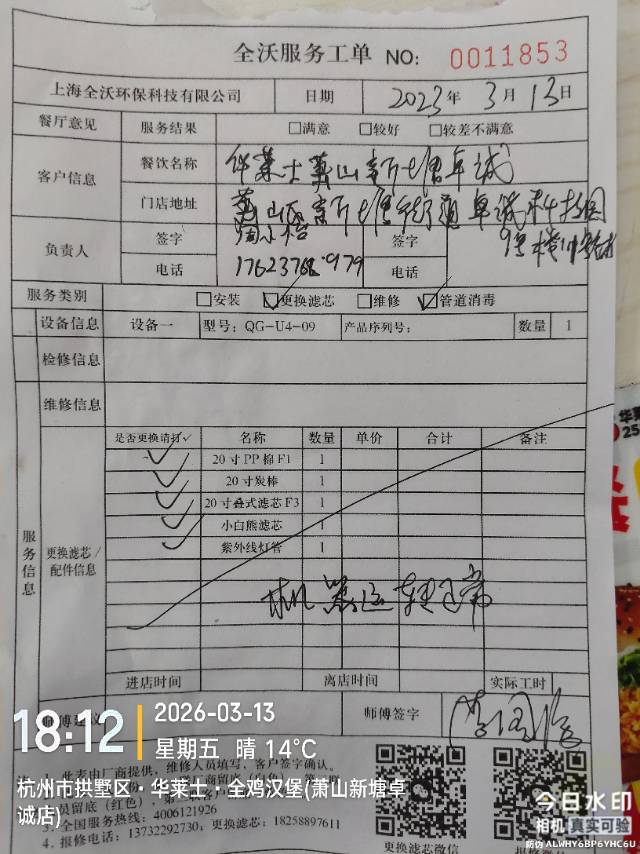 全沃服务工单 NO: 0011853
上海全沃环保科技有限公司 日期 2023年 3月13日
餐厅意见 服务结果 □满意 □较好 □较差不满意
客户信息 餐饮名称 华莱士萧山新塘卓诚
门店地址 萧山区新塘街道卓诚科技园
9号楼
负责人 签字 签字
电话 电话
服务类别 □安装 ☑更换滤芯 □维修 ☑管道消毒
设备信息 设备一 型号: QG-U4-09 产品序列号: 数量 1
检修信息
维修信息
服务信息
更换滤芯/配件信息
是否更换请打✓ 名称 数量 单价 合计 备注
✓ 20寸PP棉F1 1
✓ 20寸炭棒 1
✓ 20寸叠式滤芯F3 1
✓ 小白熊滤芯 1
✓ 紫外线灯管 1
机器运转正常
进店时间 离店时间 实际工时
师傅建议 师傅签字
18:12 2026-03-13
星期五 晴 14℃
杭州市拱墅区·华莱士·全鸡汉堡(萧山新塘卓诚店)
1. 此表由厂商提供，维修人员填写、客户签字确认。
员留底（红色），
3. 全国服务热线: 4006121926
4. 报修电话: 13732292730; 更换滤芯: 18258897611
更换滤芯微信
今日水印
相机 真实可验
防伪 ALWHY6BP6YHC6U